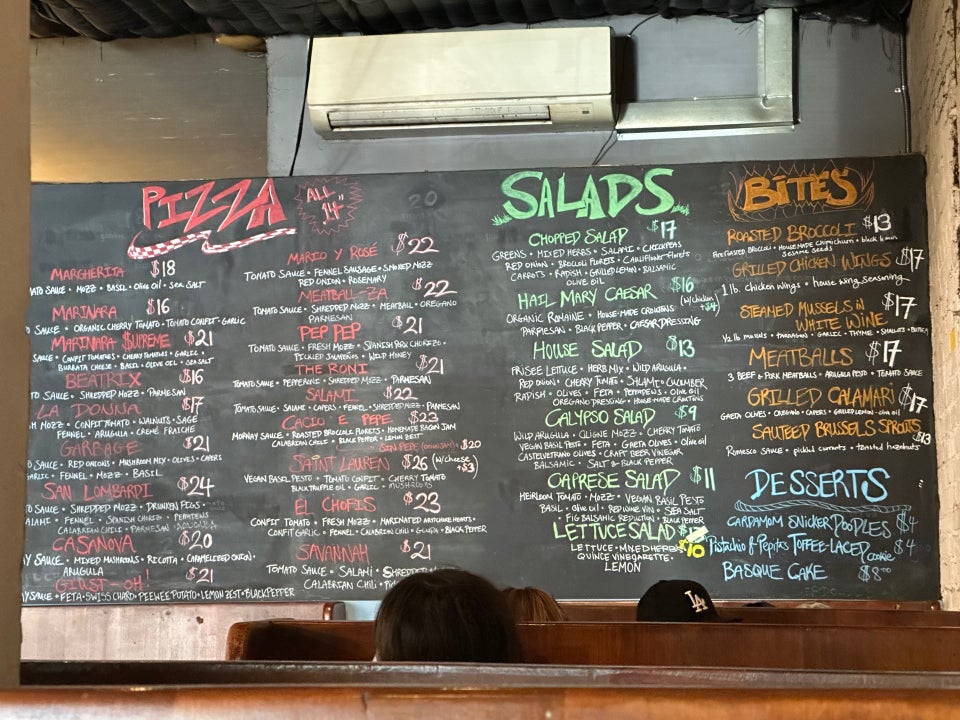 PIZZA
ALL 14"
MARGHERITA $18
SAUCE • MOZZ • BASIL • OLIVE OIL • SEA SALT
MARINARA $16
SAUCE • ORGANIC CHERRY TOMATO • TOMATO CONFIT • GARLIC
MARINARA $UPREME $21
SAUCE • CONFIT TOMATOES • CHERRY TOMATOES • GARLIC •
BURRATA CHEESE • BASIL • OLIVE OIL • SEA SALT
BEATRIX $16
SAUCE • SHREDDED MOZZ • PARMESAN
LA DONNA $17
MOZZ • CONFIT TOMATO • WALNUTS • SAGE
FENNEL • ARUGULA • CRÈME FRAÎCHE
GARBAGE $21
SAUCE • RED ONIONS • MUSHROOM MIX • OLIVES • CAPERS
GARLIC • FENNEL • MOZZ • BASIL
SAN LOMBARDI $24
SAUCE • SHREDDED MOZZ • DRUNKEN FIGS •
SALAMI • FENNEL • SPANISH CHORIZO • PEPATEWS
CALABRIAN CHILE • PARMESAN
CASANOVA $20
SAUCE • MIXED MUSHROOMS • RICOTTA • CARAMELIZED ONION •
ARUGULA
$21
SAUCE • FETA • SWISS CHARD • PEEWEE POTATO • LEMON ZEST • BLACK PEPPER
MARIO Y ROSÉ $22
TOMATO SAUCE • FENNEL SAUSAGE • SMOKED MOZZ
RED ONION • ROSEMARY
MEATBALL-ZA $22
TOMATO SAUCE • SHREDDED MOZZ • MEATBALL • OREGANO
PARMESAN
PEP PEP $21
TOMATO SAUCE • FRESH MOZZ • SPANISH PORK CHORIZO •
PICKLED JALAPEÑOS • WILD HONEY
THE RONI $21
TOMATO SAUCE • PEPPERONI • SHREDDED MOZZ • PARMESAN
SALAMI $22
TOMATO SAUCE • SALAMI • CAPERS • FENNEL • SHREDDED MOZZ • PARMESAN
CACIO E PEPE $23
MORNAY SAUCE • ROASTED BROCCOLI FLORETS • HOMEMADE BACON JAM
CALABRIAN CHILE • BLACK PEPPER • LEMON ZEST
SIN PEPE $20
SAINT LAUREN $26 (W/CHEESE +$3)
VEGAN BASIL PESTO • TOMATO CONFIT • CHERRY TOMATO
BLACK TRUFFLE OIL • GARLIC • MUSHROOMS
EL CHOFIS $23
CONFIT TOMATO • FRESH MOZZ • MARINATED ARTICHOKE HEARTS •
CONFIT GARLIC • FENNEL • CALABRIAN CHILI • BLACK PEPPER
SAVANNAH $21
TOMATO SAUCE • SALAMI • SHREDDED
CALABRIAN CHILI •
SALADS
CHOPPED SALAD $17
GREENS • MIXED HERBS • SALAMI • CHICKPEAS
RED ONION • BROCCOLI FLORETS • CAULIFLOWER FLORETS
CARROTS • RADISH • GRILLED LEMON • BALSAMIC
OLIVE OIL
HAIL MARY CAESAR $16 (W/CHICKEN +$4)
ORGANIC ROMAINE • HOUSE-MADE CROUTONS
PARMESAN • BLACK PEPPER • CAESAR DRESSING
HOUSE SALAD $13
FRISEE LETTUCE • HERB MIX • WILD ARUGULA •
RED ONION • CHERRY TOMATO • SALAMI • CUCUMBER
RADISH • OLIVES • FETA • PEPATEWS • OLIVE OIL
OREGANO DRESSING • HOUSE MADE CROUTONS
CALYPSO SALAD $9
WILD ARUGULA • CILIGNE MOZZ • CHERRY TOMATO
VEGAN BASIL PESTO • FETA • GAETA OLIVES • OLIVE OIL
CASTELVETRANO OLIVES • CRAFT BEER VINEGAR
BALSAMIC • SALT & BLACK PEPPER
CAPRESE SALAD $11
HEIRLOOM TOMATO • MOZZ • VEGAN BASIL PESTO
BASIL • OLIVE OIL • RED WINE VIN • SEA SALT
FIG BALSAMIC REDUCTION • BLACK PEPPER
LETTUCE SALAD $10
LETTUCE • MIXED HERBS
QUINCE VINEGARETTE •
LEMON
BITES
ROASTED BROCCOLI $13
Fire Roasted Broccoli • HOUSEMADE Chimichurri • black & white
Sesame seeds
GRILLED CHICKEN WINGS $17
1 lb. chicken wings • house wing seasoning
STEAMED MUSSELS IN
WHITE WINE $17
1/2 lb mussels • TARRAGON • GARLIC • THYME • SHALLOTS • BUTTER
MEATBALLS $17
3 BEEF & PORK MEATBALLS • ARUGULA PESTO • TOMATO SAUCE
GRILLED CALAMARI $17
GAETA OLIVES • OREGANO • CAPERS • GRILLED LEMON • OLIVE OIL
SAUTEED BRUSSELS SPROUTS $13
Romesco sauce • pickled currants • toasted hazelnuts
DESSERTS
CARDAMOM SNICKERDOODLES $4
Pistachio & Pepitas TOFFEE-LACED Cookie $4
BASQUE CAKE $8.00
LA